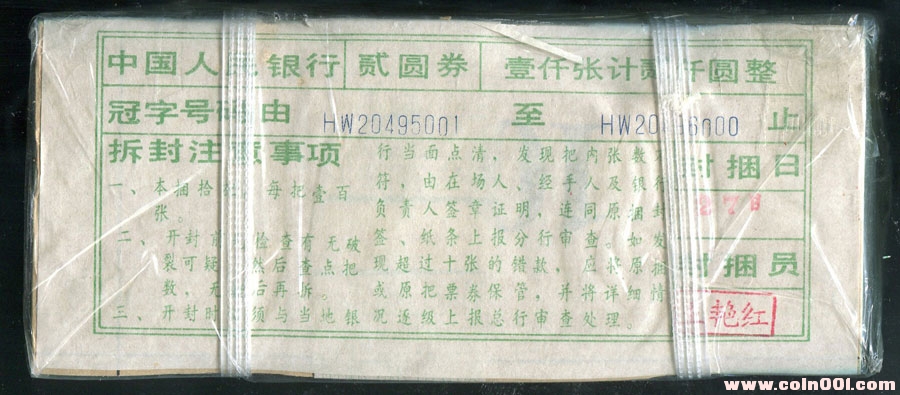 中国人民银行 贰圆券 壹仟张计贰仟圆整
冠字号码由 HW20495001 至 HW20496000 止
拆封注意事项
一、本捆拾把,每把壹百
张。
二、开封前 检查有无破
裂可疑 然后查点把
数,无 后再拆。
三、开封时 须与当地银
行当面点清,发现把内张数不
符,由在场人、经手人及银行
负责人签章证明,连同原捆封
签、纸条上报分行审查。如发
现超过十张的错款,应将原捆
或原把票券保管,并将详细情
况逐级上报总行审查处理。
封捆日
封捆员
艳红
www.coin001.com